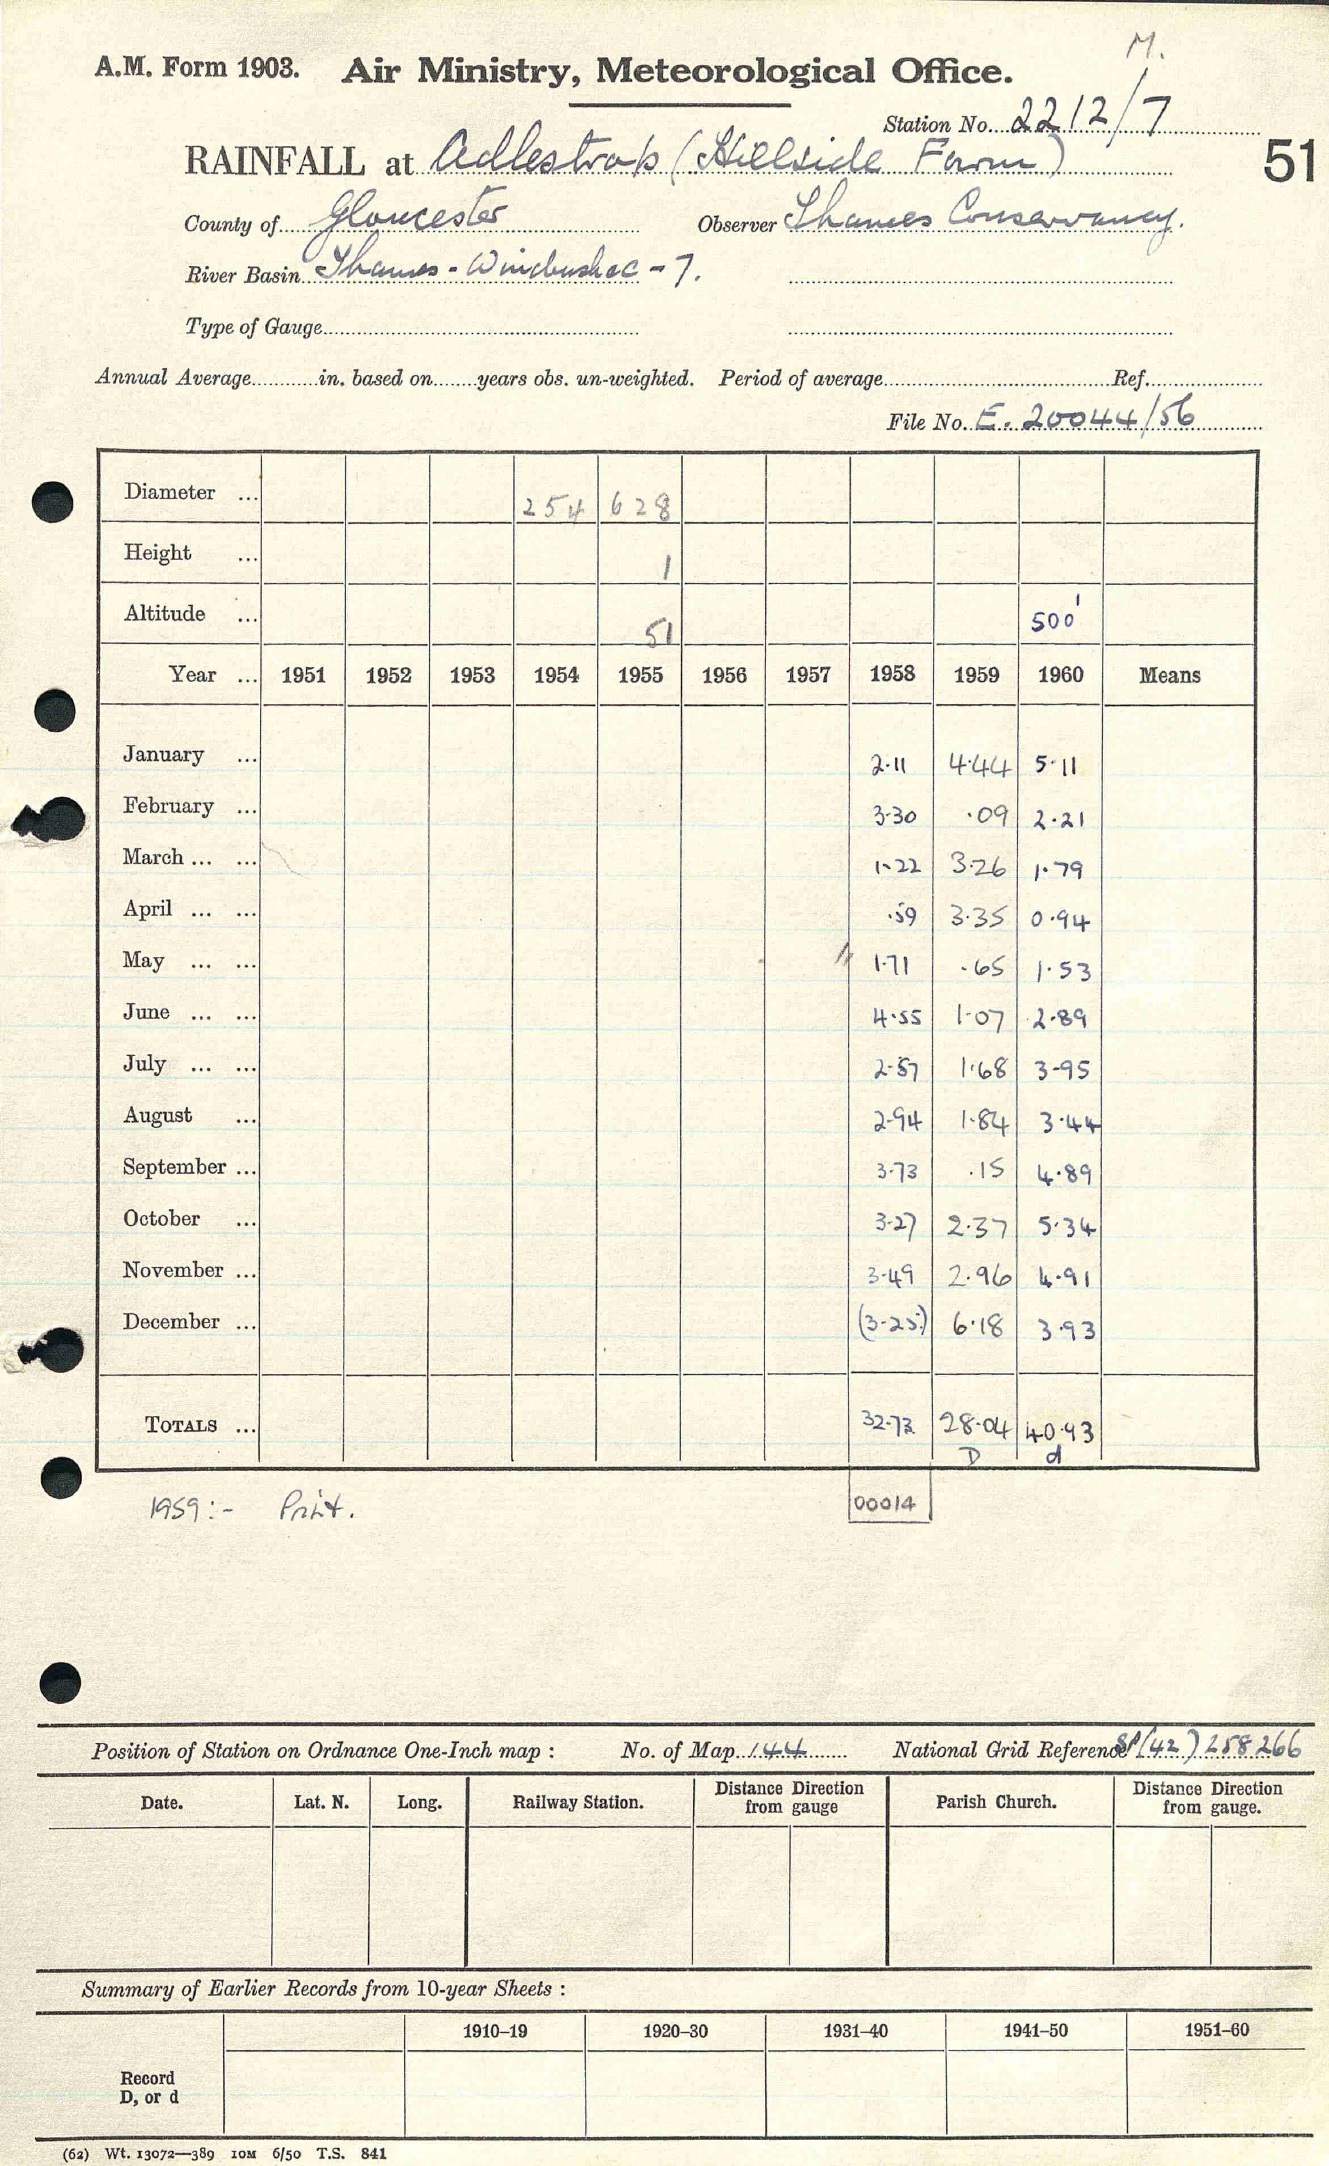 M.
A.M. Form 1903. Air Ministry, Meteorological Office.
Station No. 2212/7
51
RAINFALL at Adlestrop (Hillside Farm)
County of Gloucester Observer Thames Conservancy.
River Basin Thames - Windrush &c - 7.
Type of Gauge
Annual Average in. based on years obs. un-weighted. Period of average Ref.
File No. E. 20044/56
Diameter ... 254 628
Height ... 1
Altitude ... 51 500'
Year ... 1951 1952 1953 1954 1955 1956 1957 1958 1959 1960 Means
January ... 2·11 4·44 5·11
February ... 3·30 ·09 2·21
March ... ... 1·22 3·26 1·79
April ... ... ·59 3·35 0·94
May ... ... 1·71 ·65 1·53
June ... ... 4·55 1·07 2·89
July ... ... 2·57 1·68 3·95
August ... 2·94 1·84 3·44
September ... 3·73 ·15 4·89
October ... 3·27 2·37 5·34
November ... 3·49 2·96 4·91
December ... (3·25) 6·18 3·93
TOTALS ... 32·73 28·04 40·93
D d
1959:- Print. 00014
Position of Station on Ordnance One-Inch map : No. of Map 144 National Grid Reference SP(42) 258266
Date. Lat. N. Long. Railway Station. Distance Direction from gauge Parish Church. Distance Direction from gauge.
Summary of Earlier Records from 10-year Sheets :
1910–19 1920–30 1931–40 1941–50 1951–60
Record
D, or d
(62) Wt. 13072—389 10M 6/50 T.S. 841